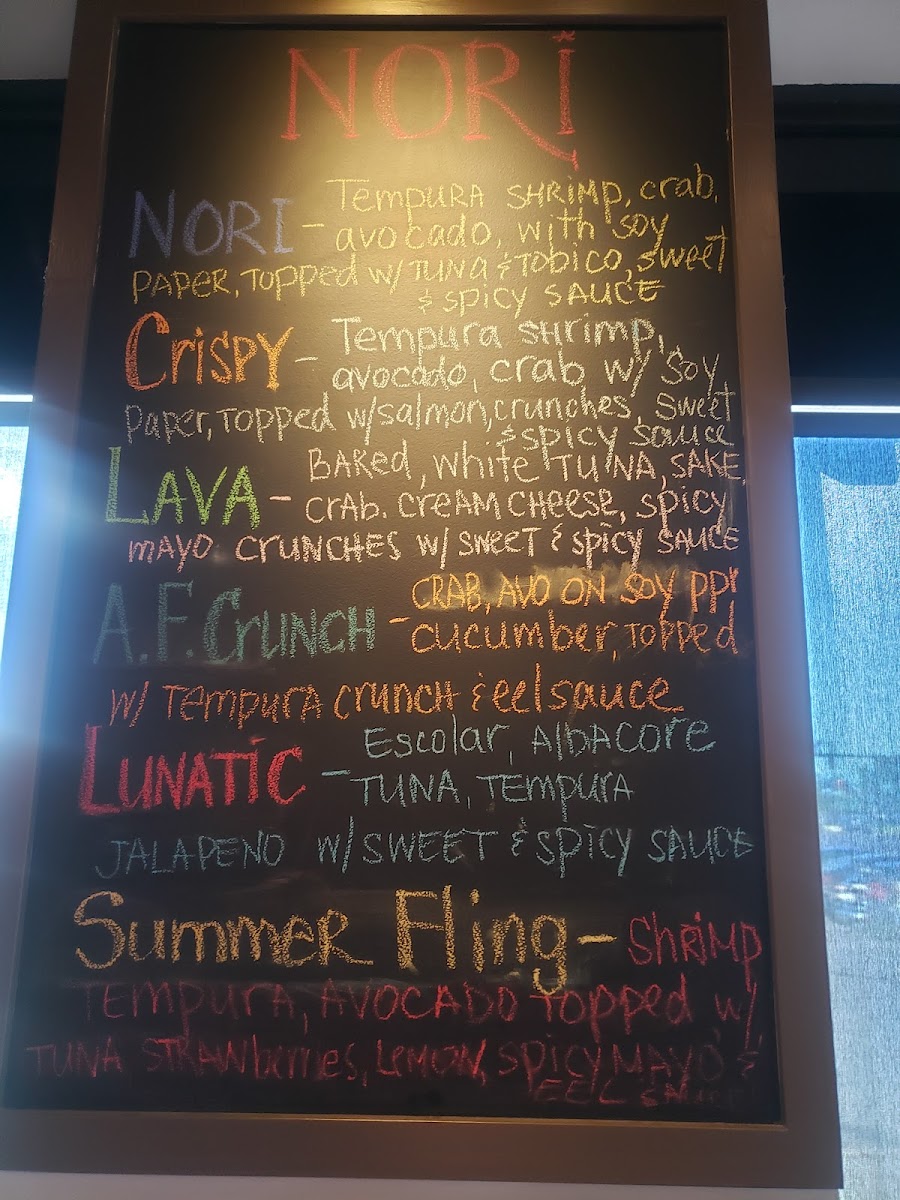 NORi
NORI - TempuRA SHRiMp, crab,
avocado, with soy
PAPER, Topped w/ TUNA & TObico, Sweet
& spicy SAUCE
CRiSPY - Tempura shrimp,
avocado, crab w/ soy
Paper, Topped w/ salmon, crunches, Sweet
& spicy sauce
LAVA - BAKed, white TUNA, SAKE,
CrAb. CREAM CHEESE, spicy
mayo CRUNCHES w/ SWEET & SPICY SAUCE
A.F. CrUNCH - CRAB, AVO ON Soy ppr
cucumber, TOPPed
w/ TempuRA crunch & eel sauce
LUNATiC - Escolar, AlbAcore
TUNA, TEmpuRA
JALAPENO w/ SWEET & Spicy SAUCE
SummER Fling - ShRimp
TEmpurA, AVOCADO Topped w/
TUNA STRAWberries, LEMON, SpicyMAYO &
EEL SAuce